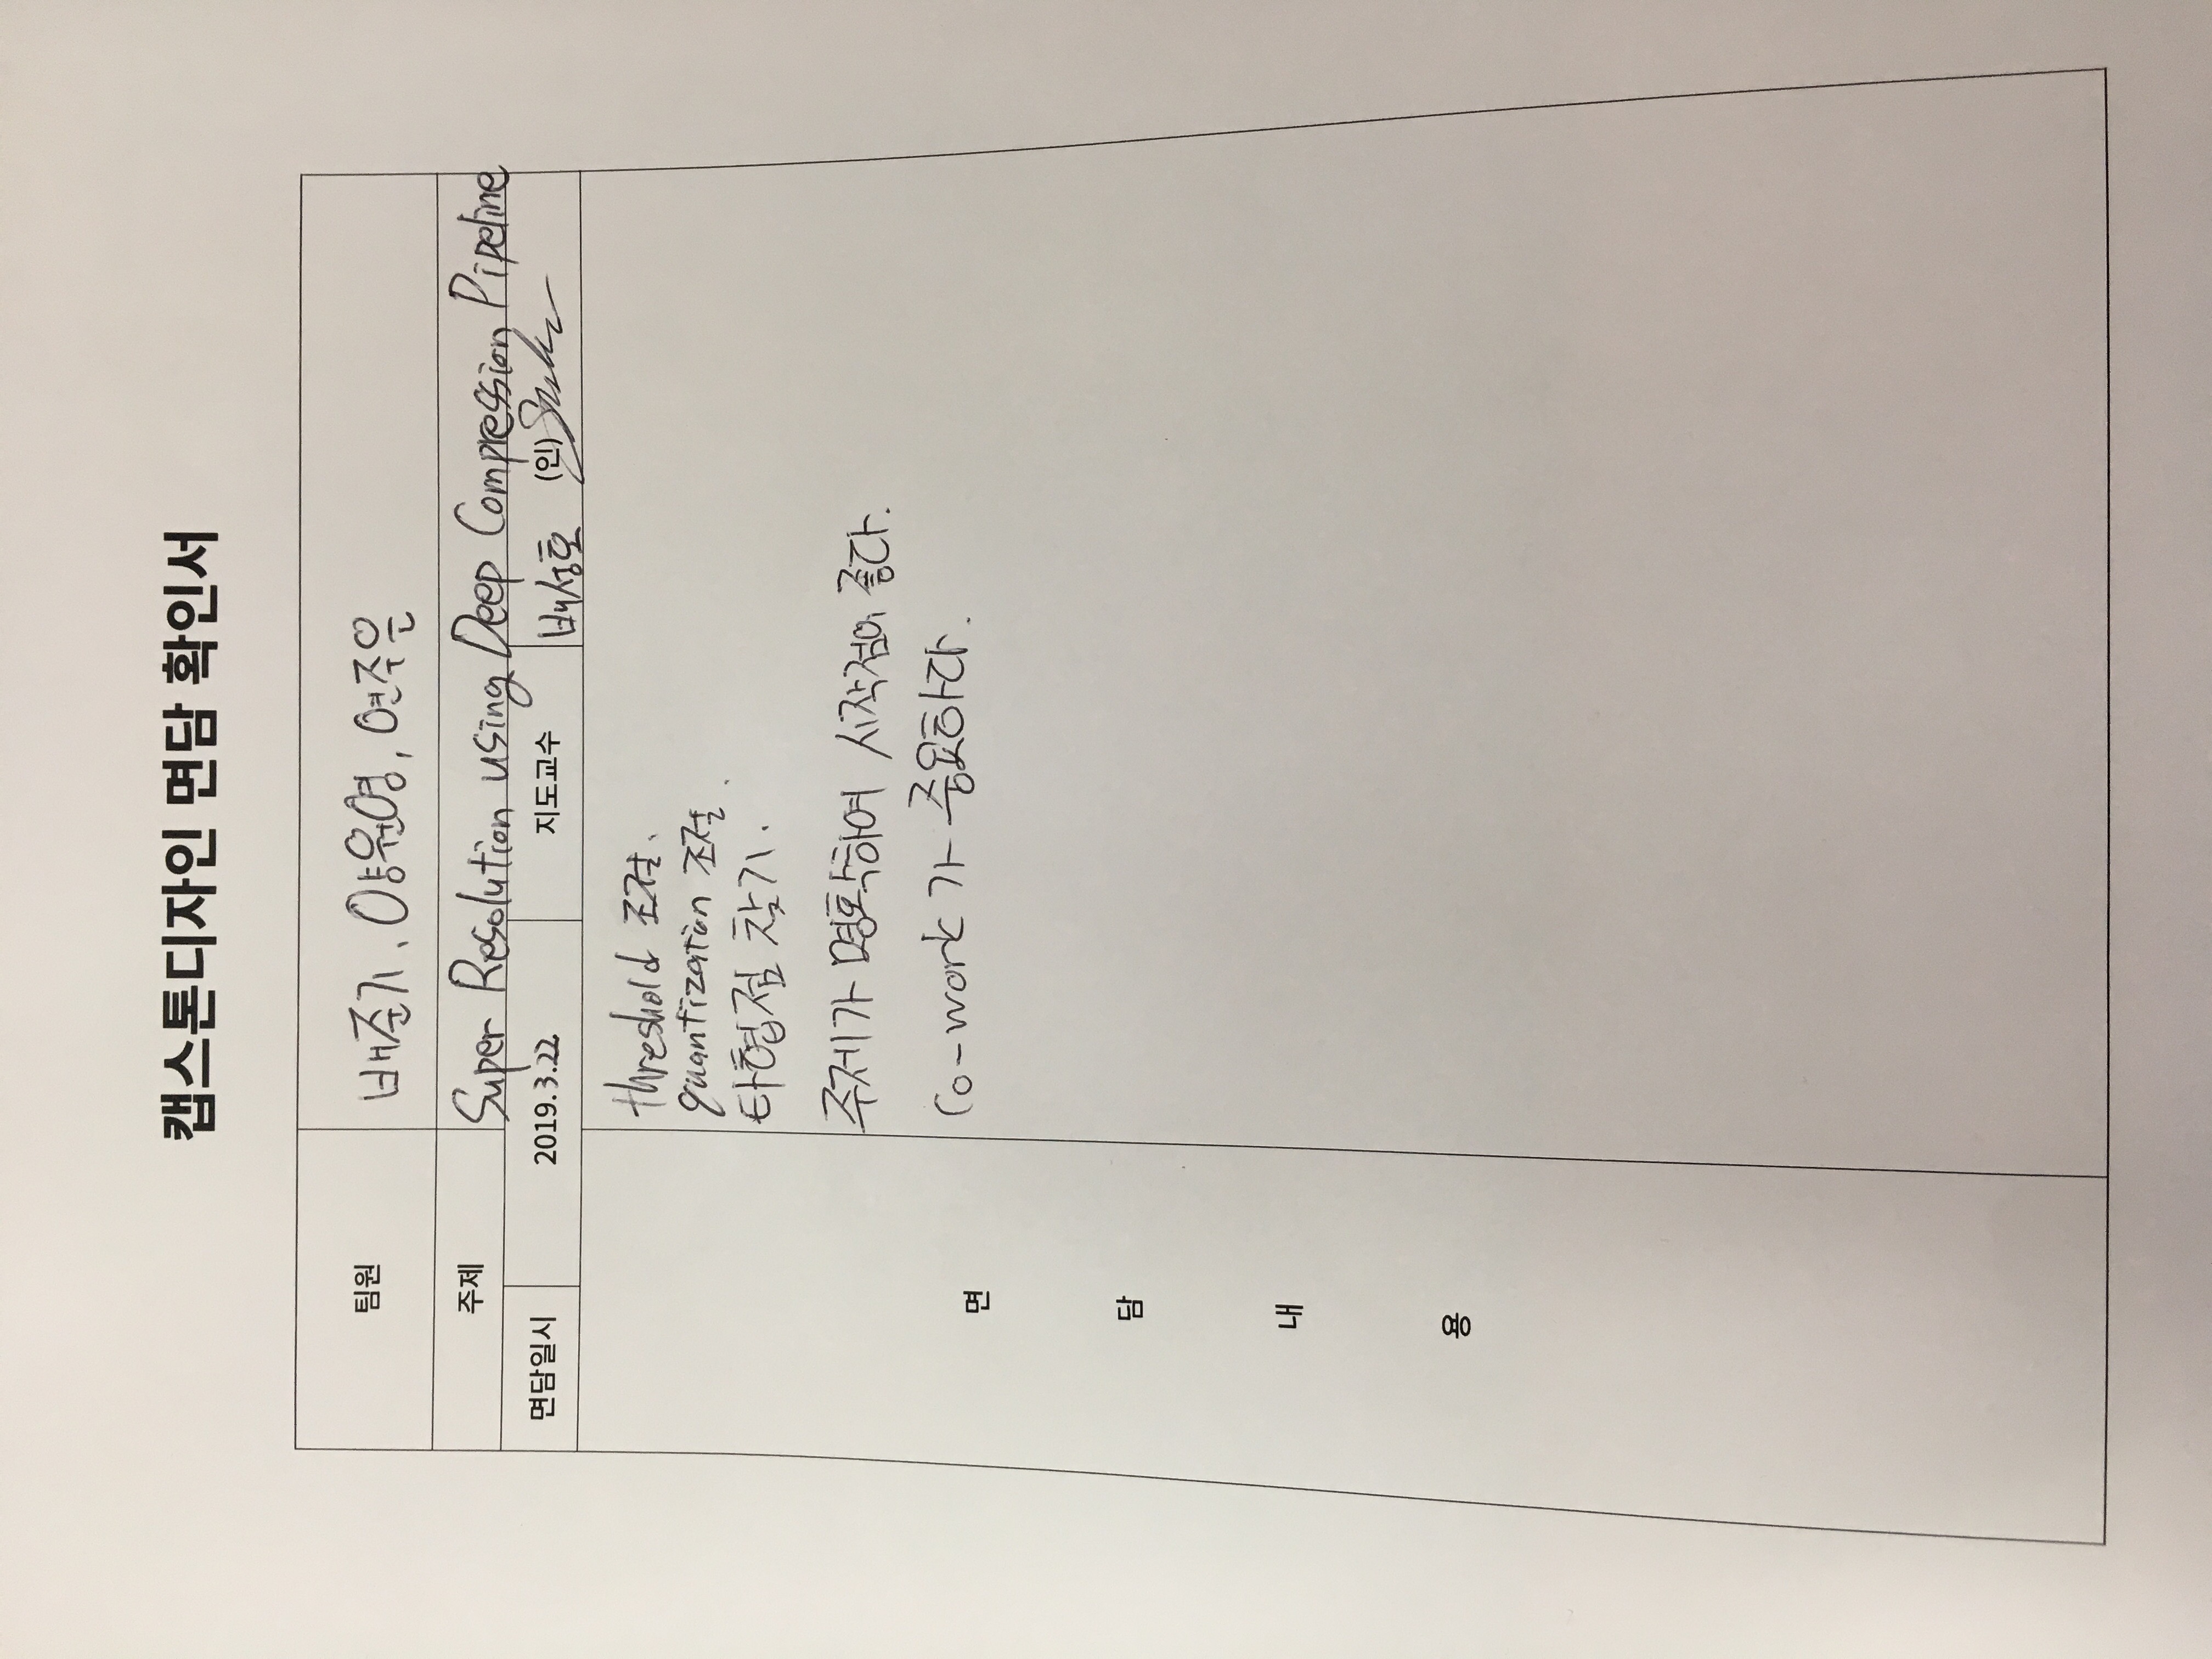 캡스톤디자인 면담 확인서
팀원 배준기, 양원영, 연주은
주제 Super Resolution using Deep Compression Pipeline
면담일시 2019.3.22 지도교수 배성호 (인)
면담내용
threshold 조절.
quantization 조절.
타협점 찾기.
주제가 명확하여 시작점이 좋다.
co-work 가 중요하다.